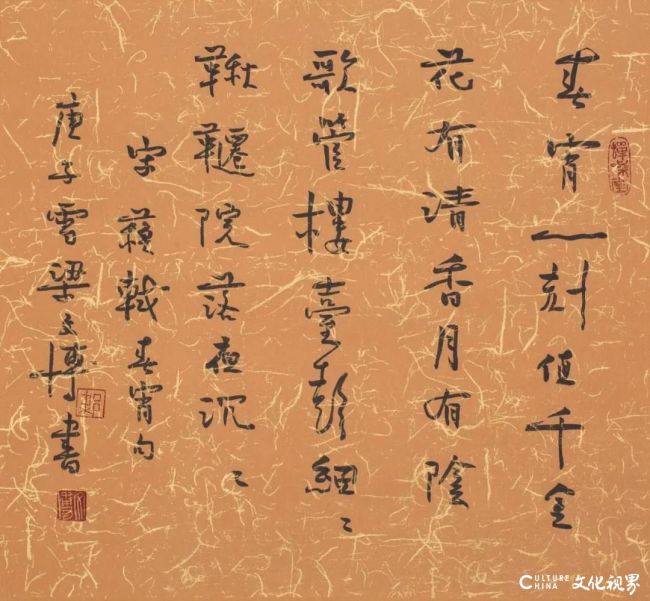 春宵一刻值千金
花有清香月有陰
歌管樓臺聲細〻
鞦韆院落夜沉〻
宋蘇軾春宵句
庚子雪梁文博書
CULTURE CHINA 文化视界